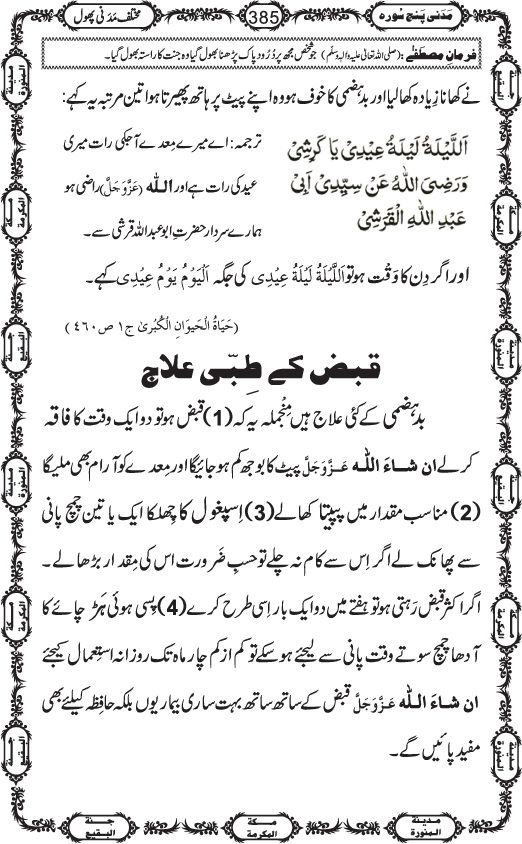 مَدَنی پنج سُورہ
385
مختلف مَدَنی پھول
فرمانِ مصطَفٰے : (صلی اللہ تعالیٰ علیہ والہٖ وسلّم) جو شخص مجھ پر دُرُودِ پاک پڑھنا بھول گیا وہ جنّت کا راستہ بھول گیا۔
نے کھانا زِیادہ کھا لیا اور بد ہضمی کا خوف ہو وہ اپنے پیٹ پر ہاتھ پھیرتا ہوا تین مرتبہ یہ کہے :
اَللَّيْلَةُ لَيْلَةُ عِيْدِىْ يَا كَرْشِىْ
وَرَضِىَ اللّٰهُ عَنْ سَيِّدِىْ اَبِىْ
عَبْدِ اللّٰهِ الْقَرَشِىْ
ترجمہ : اے میرے مِعدے آجکی رات میری
عید کی رات ہے اور اللہ (عَزَّوَجَلَّ) راضی ہو
ہمارے سردار حضرتِ ابو عبد اللہ قرشی سے۔
اور اگر دِن کا وَقْت ہو تو اَللَّيْلَةُ لَيْلَةُ عِيْدِى کی جگہ اَلْيَوْمُ يَوْمُ عِيْدِى کہے۔
(حَيَاةُ الْحَيوَانِ الْكُبْرىٰ ج۱ ص۴۶۰)
قبض کے طِبّی علاج
بد ہضمی کے کئی علاج ہیں مِنْجُملہ یہ کہ (1) قبض ہو تو دو ایک وقت کا فاقہ
کر لے ان شاءَ اللہ عَزَّوَجَلَّ پیٹ کا بوجھ کم ہو جائیگا اور مِعدے کو آرام بھی ملیگا
(2) مناسب مقدار میں پپیتا کھا لے (3) اِسپغول کا چھلکا ایک یا تین چمچ پانی
سے پھانک لے اگر اِس سے کام نہ چلے تو حسبِ ضَرورت اس کی مِقدار بڑھا لے۔
اگر اکثر قبض رَہتی ہو تو ہفتے میں دو ایک بار اِسی طرح کرے (4) پِسی ہوئی ہَڑ چائے کا
آدھا چمچ سوتے وقت پانی سے لیجئے ہو سکے تو کم از کم چار ماہ تک روزانہ اِستِعمال کیجئے
ان شاءَ اللہ عَزَّوَجَلَّ قبض کے ساتھ ساتھ بہت ساری بیماریوں بلکہ حافِظہ کیلئے بھی
مفید پائیں گے۔
مدینۃ المنورۃ
جنۃ البقیع
مکۃ المکرمۃ
مکۃ المکرمۃ
جنۃ البقیع
مدینۃ المنورۃ
مدینۃ المنورۃ
جنۃ البقیع
مکۃ المکرمۃ
مکۃ المکرمۃ
جنۃ البقیع
مدینۃ المنورۃ
جنۃ البقیع
مکۃ المکرمۃ
مدینۃ المنورۃ